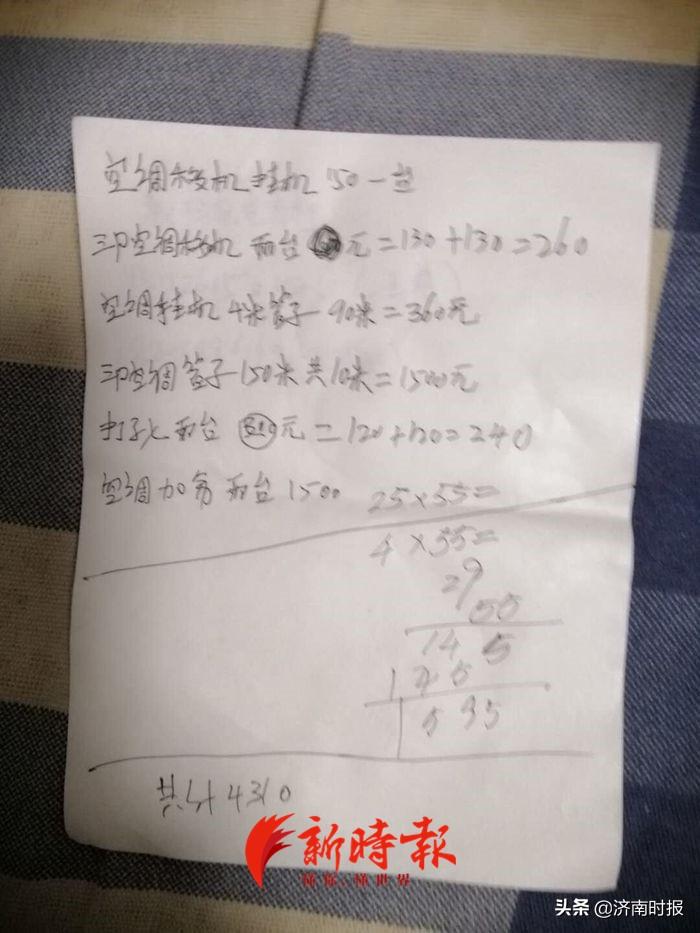 空调移机挂机150一台
三印空调移机 两台 元=130+130=260
空调挂机 4米管子一90米=360元
三印空调管子150米共10米=1500元
打孔两台 元=120+120=240
空调加 两台1500
25×55=
4×55=
29
55
145
145
595
共计4310
新時報
懂你,懂世界
头条@济南时报